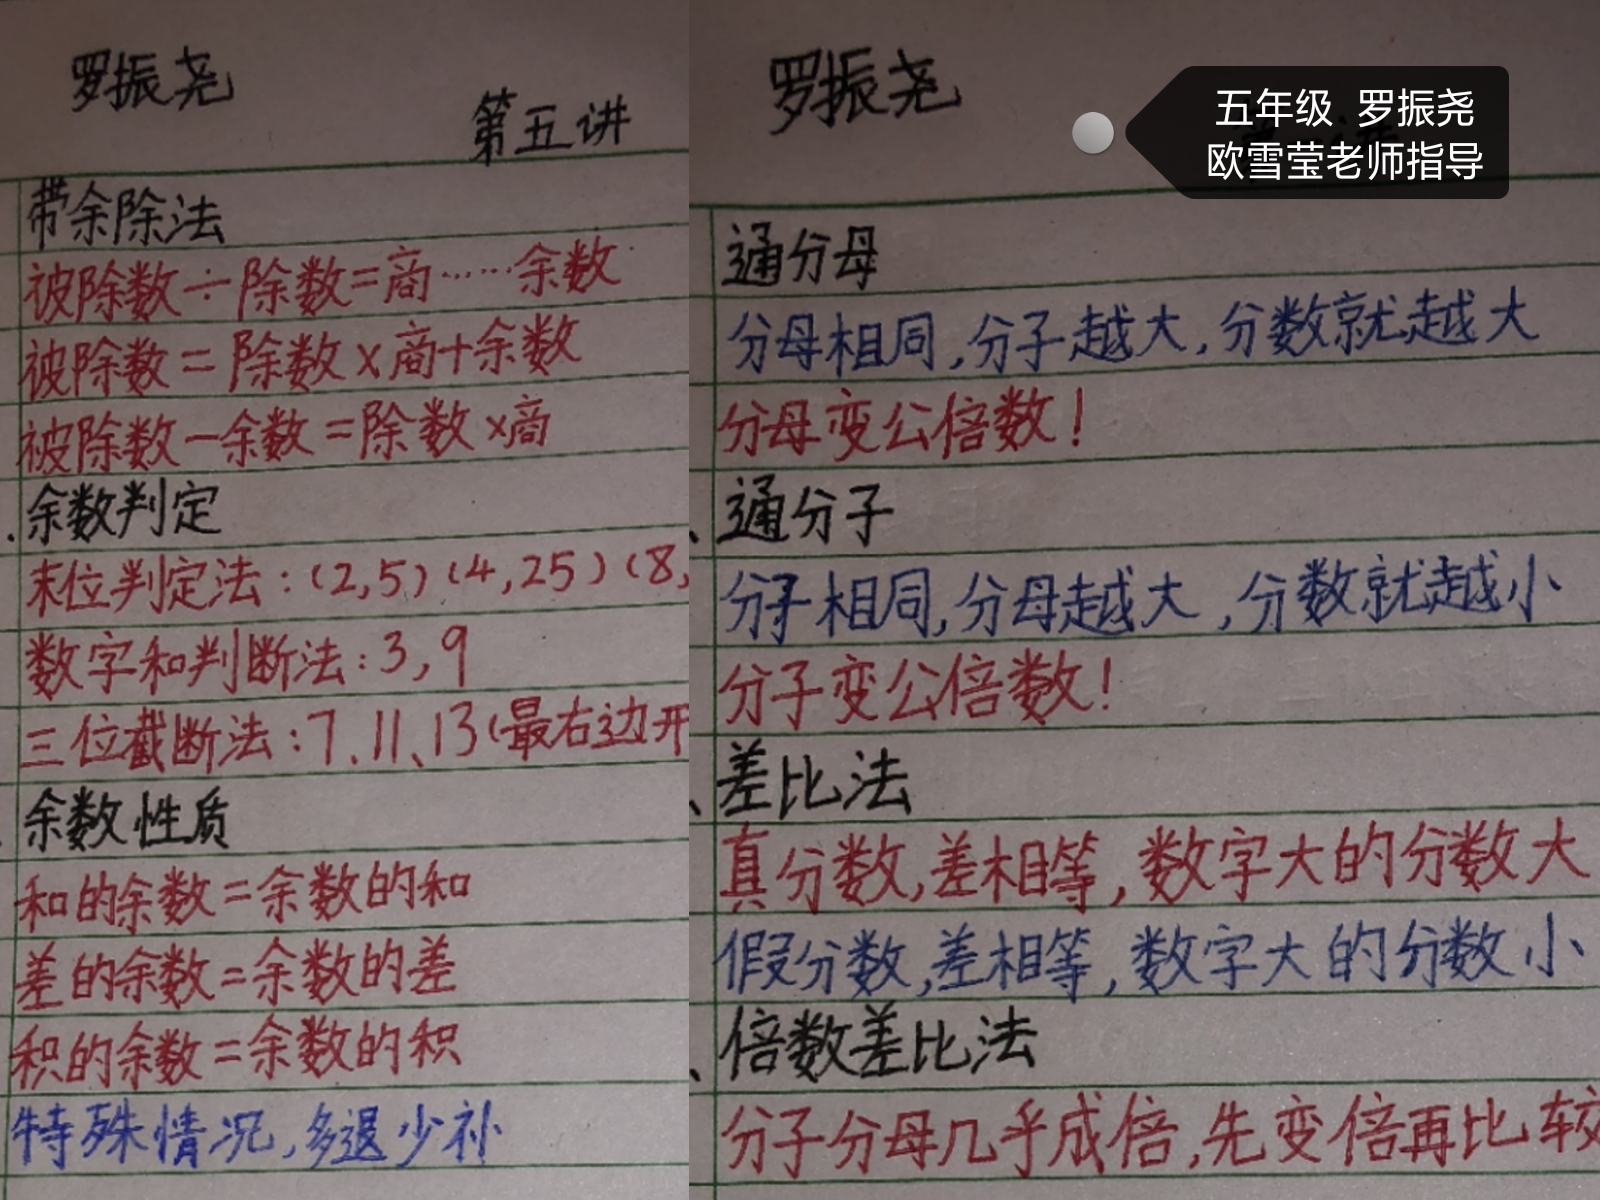 罗振尧
第五讲
带余除法
被除数÷除数=商……余数
被除数=除数×商+余数
被除数-余数=除数×商
.余数判定
末位判定法:(2,5)(4,25)(8,
数字和判断法:3,9
三位截断法:7、11、13(最右边开
余数性质
和的余数=余数的和
差的余数=余数的差
积的余数=余数的积
特殊情况,多退少补
罗振尧
五年级 罗振尧
欧雪莹老师指导
通分母
分母相同,分子越大,分数就越大
分母变公倍数!
、通分子
分子相同,分母越大,分数就越小
分子变公倍数!
、差比法
真分数,差相等,数字大的分数大
假分数,差相等,数字大的分数小
、倍数差比法
分子分母几乎成倍,先变倍再比较